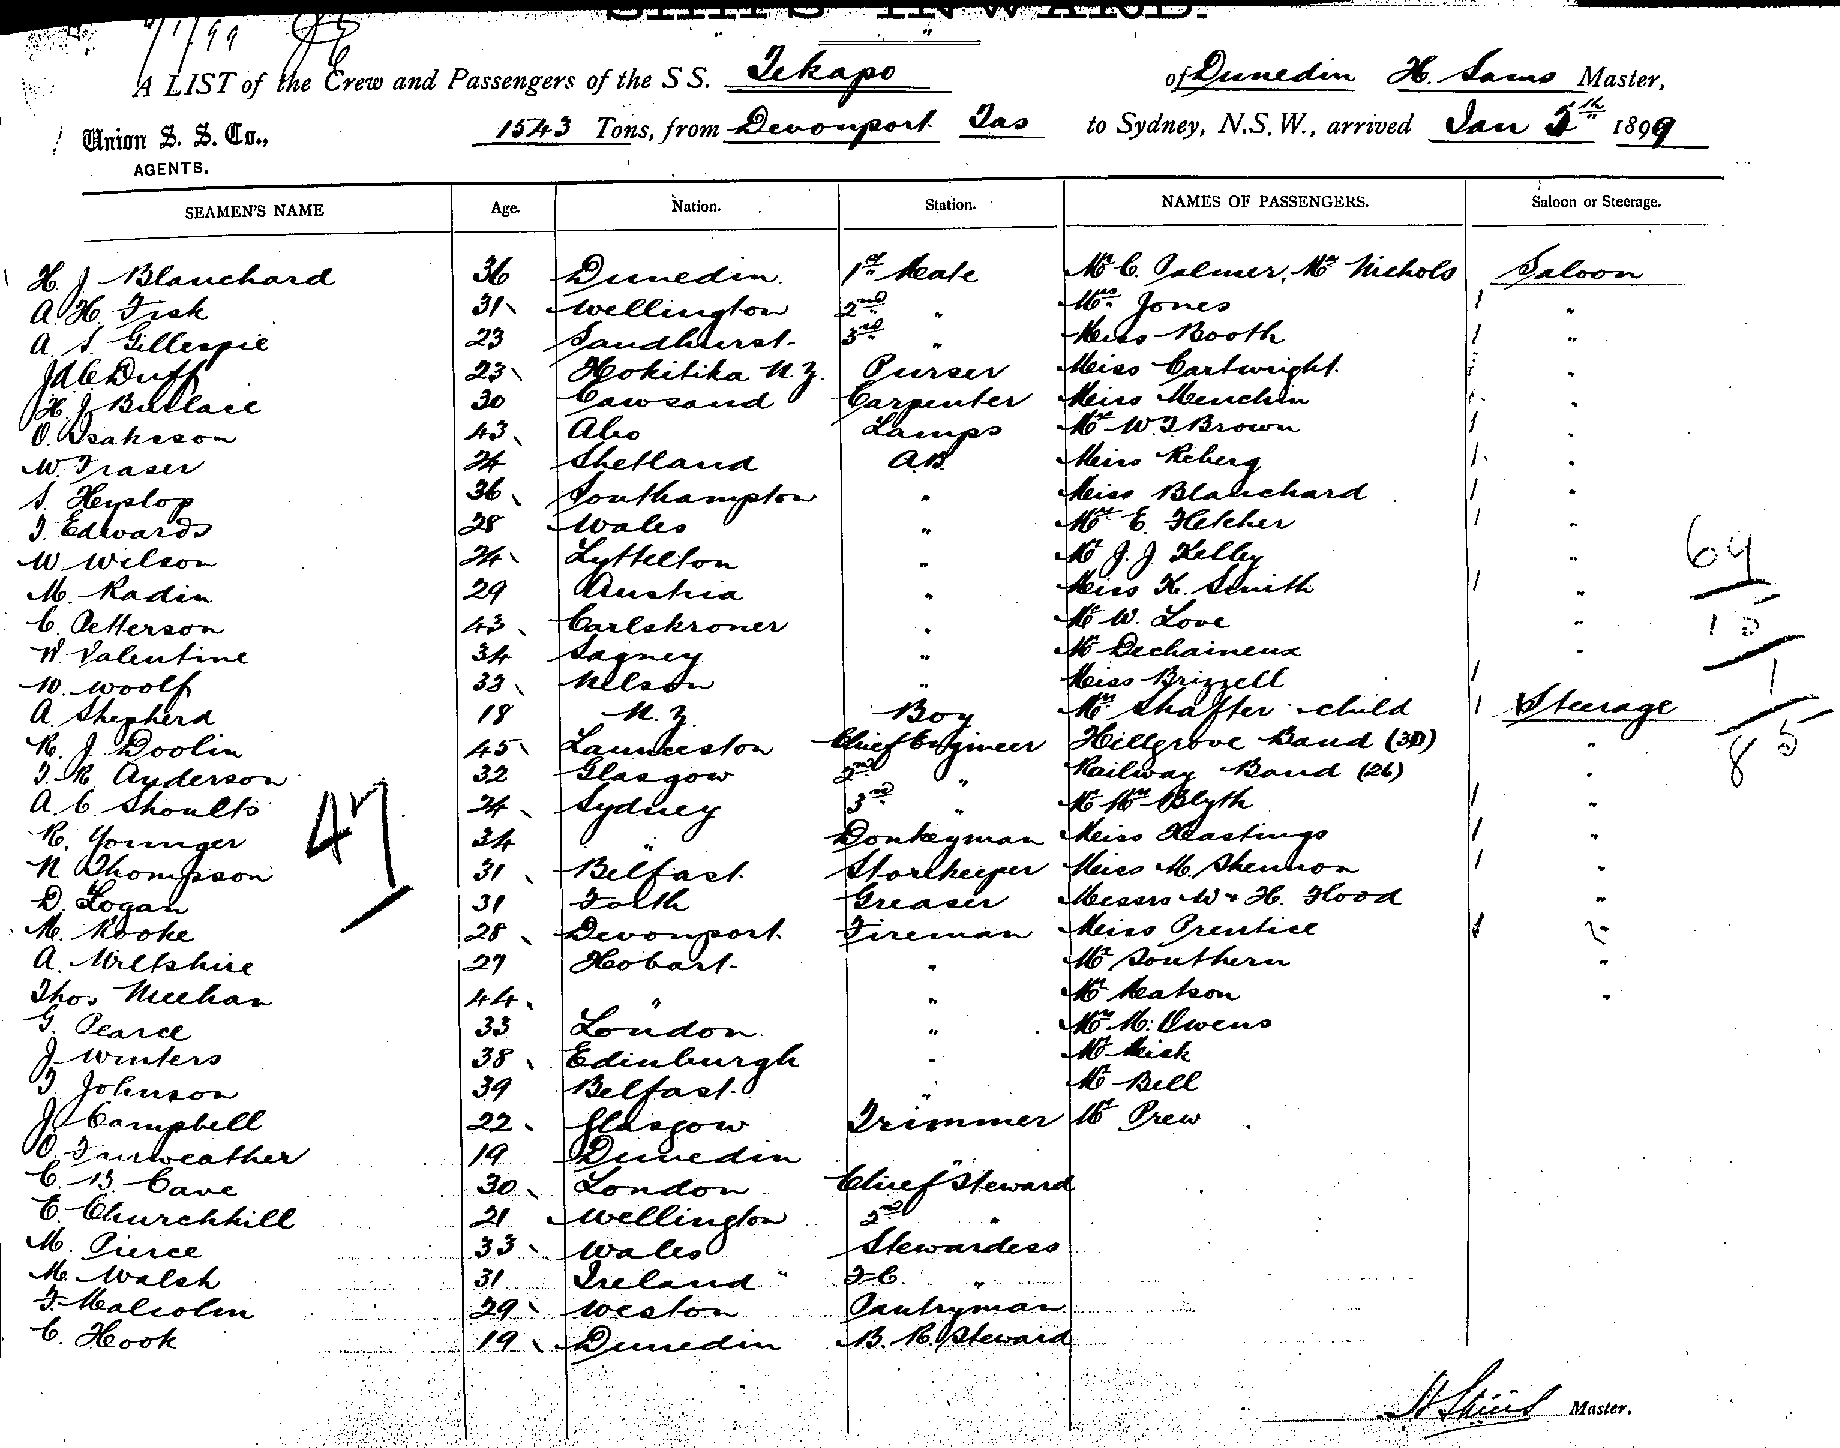 SHIPS INWARD.
A LIST of the Crew and Passengers of the S S. Tekapo of Dunedin H. Sams Master,
Union S. S. Co., 1543 Tons, from Devonport Tas to Sydney, N.S.W., arrived Jan 5th 1899
AGENTS.
SEAMEN'S NAME Age. Nation. Station. NAMES OF PASSENGERS. Saloon or Steerage.
H. J Blanchard 36 Dunedin 1st Mate Mr C. Palmer, Mr Nichols Saloon
A. H Fisk 31 Wellington 2nd " Mrs Jones "
A S. Gillespie 23 Sandhurst 3rd " Miss Booth "
Duff 23 Hokitika N.Z. Purser Miss Cartwright "
H. J 30 Cawsand Carpenter Miss Menchin "
O. Isaksson 43 Abo Lamps Mr W. J. Brown "
W. Fraser 24 Shetland A.B. Miss Reberg "
S. Heyslop 36 Southampton " Miss Blanchard "
T. Edwards 28 Wales " E. Fletcher "
W Wilson 24 Lyttelton " Mr J. J Kelley "
M. Radin 29 Austria " Miss K. Smith "
C. Petterson 43 Carlskroner " Mr W. Love "
Valentine 34 " Mr Dechaineux "
W. Woolf 33 Nelson " Miss Brizzell
A. Shepherd 18 N. Z. Boy Mrs Shafter child Steerage
R. J Doolin 45 Launceston Chief Engineer Hillgrove Band (30) "
J. R Anderson 32 Glasgow 2nd " Railway Band (26) "
A C Shoults 24 Sydney 3rd " Blyth "
R. Younger 34 " Donkeyman Miss Hastings "
N Thompson 31 Belfast Storekeeper Miss M. Shennon "
D. Logan 31 Forth Greaser Messrs W & H. Flood "
M. Rooke 28 Devonport Fireman Miss Prentice "
A. Wiltshire 27 Hobart " Mr Southern "
Thos Meehan 44 " " Mr Matson "
G. Pearce 33 London " M. Owens
J Winters 38 Edinburgh " Mr
J Johnson 39 Belfast " Mr Bell
J Campbell 22 Glasgow Trimmer Mr Prew
O. Fairweather 19 Dunedin "
C. B. Cave 30 London Chief Steward
E Churchhill 21 Wellington 2nd "
M. Pierce 33 Wales Stewardess
M. Walsh 31 Ireland F.C. "
F. Malcolm 29 Weston Pantryman
C. Hook 19 Dunedin B. R. Steward
47
15
1
85
Master.